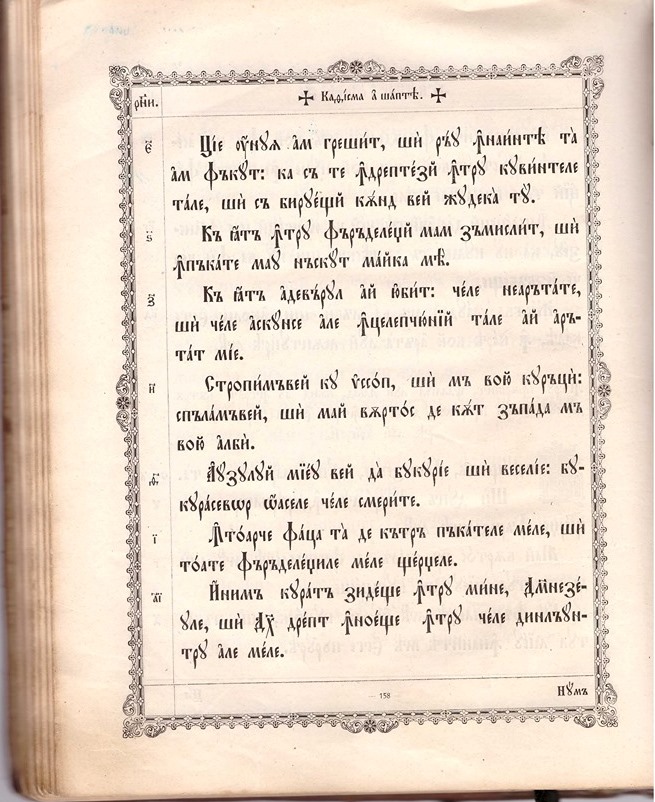 рн҃и. ✠ Каѳі́сма а҆ ша́птѣ. ✠
є҃ Ці́е ᲂу҆́нуꙗ а҆́м греши́т, шѝ ръ́у ꙟ҆наи́нтѣ та̀
а҆́м фъку́т: ка съ те ꙟ҆дрепте́зй ꙟ҆́тру куви́нтеле
та́ле, шѝ съ бируе́щй кѫ́нд вей жудека̀ ту̀.
ѕ҃ Къ ꙗ҆́тъ ꙟ҆́тру фъръделе́ций мам зъмисли́т, шѝ
ꙟ҆пъка́те мау нъску́т ма́йка мѣ̀.
з҃ Къ ꙗ҆́тъ а҆девъ́рул а҆́й ю҆би́т: че́ле неаръта́те,
шѝ че́ле а҆ску́нсе а҆́ле ꙟ҆целепчю́нїй та́ле а҆́й аръ-
та́т мі́е.
и҃ Стропи́мъвей ку ѵ҆ссо́п, шѝ мъ вою̀ куръцѝ:
спълъ́мъвей, шѝ май вѫрто́с де кѫ́т зъпа́да мъ
вою̀ а҆лбѝ.
ѳ҃ А҆узу́луй мїе́у вей да̀ букурі́е шѝ веселі́е: бу-
кура́севѡр ѻ҆а́селе че́ле смери́те.
і҃ ꙟ҆то́арче фа́ца та̀ де ка́тръ пъка́теле ме́ле, шѝ
то́ате фъръделе́циле ме́ле ще́рцеле.
а҃і И҆́нимъ кура́тъ зиде́ще ꙟ҆́тру ми́не, Дм҃незе́-
уле, шѝ Дх҃ дре́пт ꙟ҆ное́ще ꙟ҆́тру че́ле динлъ́ун-
тру а҆́ле ме́ле.
— 158 — Нꙋ́мъ